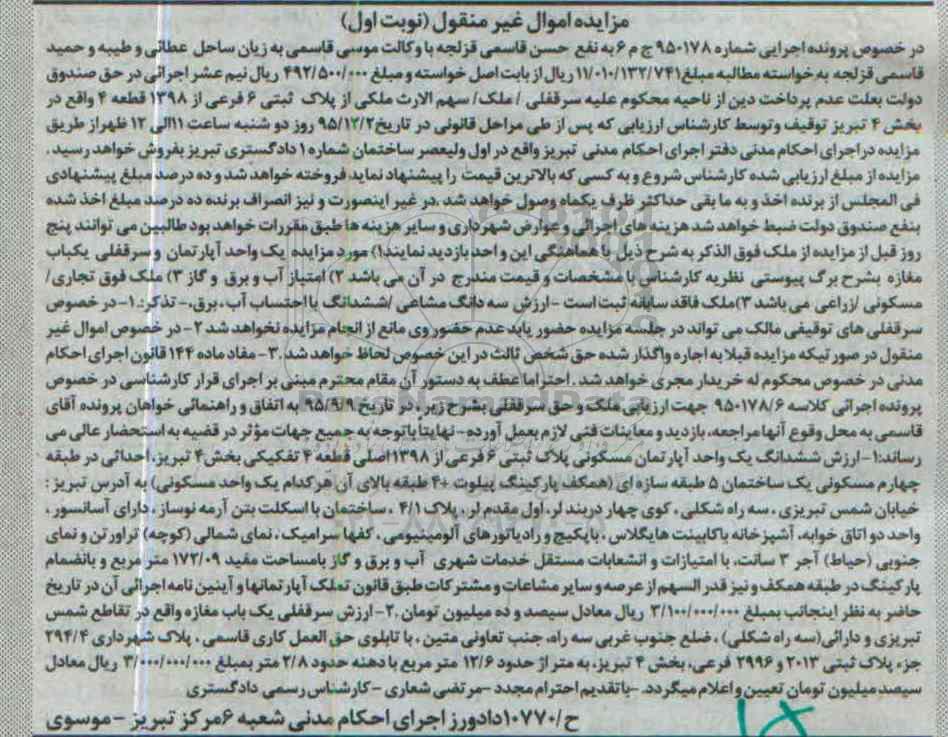 مزایده اموال غیر منقول (نوبت اول)
در خصوص پرونده اجرایی شماره ۹۵۰۱۷۸ ج م ۶ به نفع حسن قاسمی قزلجه با وکالت موسی قاسمی به زیان ساحل عطائی و طیبه و حمید
قاسمی قزلجه به خواسته مطالبه مبلغ ۱۱/۰۱۰/۱۳۲/۷۴۱ ریال از بابت اصل خواسته و مبلغ ۴۹۲/۵۰۰/۰۰۰ ریال نیم عشر اجرائی در حق صندوق
دولت بعلت عدم پرداخت دین از ناحیه محکوم علیه سرقفلی / ملک/ سهم الارث ملکی از پلاک ثبتی ۶ فرعی از ۱۳۹۸ قطعه ۴ واقع در
بخش ۴ تبریز توقیف وتوسط کارشناس ارزیابی که پس از طی مراحل قانونی در تاریخ ۹۵/۱۲/۲ روز دو شنبه ساعت ۱۱الی ۱۲ ظهراز طریق
مزایده دراجرای احکام مدنی دفتر اجرای احکام مدنی تبریز واقع در اول ولیعصر ساختمان شماره ۱ دادگستری تبریز بفروش خواهد رسید .
مزایده از مبلغ ارزیابی شده کارشناس شروع و به کسی که بالاترین قیمت را پیشنهاد نماید فروخته خواهد شد و ده درصد مبلغ پیشنهادی
فی المجلس از برنده اخذ و به ما بقی حداکثر ظرف یکماه وصول خواهد شد .در غیر اینصورت و نیز انصراف برنده ده درصد مبلغ اخذ شده
بنفع صندوق دولت ضبط خواهد شد هزینه های اجرائی و عوارض شهرداری و سایر هزینه ها طبق مقررات خواهد بود طالبین می توانند پنج
روز قبل از مزایده از ملک فوق الذکر به شرح ذیل با هماهنگی این واحد بازدید نمایند۱) مورد مزایده یک واحد آپارتمان و سرقفلی یکباب
مغازه بشرح برگ پیوستی نظریه کارشناس با مشخصات و قیمت مندرج در آن می باشد ۲) امتیاز آب و برق و گاز ۳) ملک فوق تجاری/
مسکونی /زراعی می باشد ۳)ملک فاقد سابقه ثبت است -ارزش سه دانگ مشاعی /ششدانگ با احتساب آب ،برق.- تذکر: ۱-در خصوص
سرقفلی های توقیفی مالک می تواند در جلسه مزایده حضور یابد عدم حضور وی مانع از انجام مزایده نخواهد شد ۲- در خصوص اموال غیر
منقول در صورتیکه مزایده قبلا به اجاره واگذار شده حق شخص ثالث در این خصوص لحاظ خواهد شد .۳- مفاد ماده ۱۴۴ قانون اجرای احکام
مدنی در خصوص محکوم له خریدار مجری خواهد شد . احتراما عطف به دستور آن مقام محترم مبنی بر اجرای قرار کارشناسی در خصوص
پرونده اجرائی کلاسه ۹۵۰۱۷۸/۶ جهت ارزیابی ملک و حق سرقفلی بشرح زیر ، در تاریخ ۹۵/۹/۹ به اتفاق و راهنمائی خواهان پرونده آقای
قاسمی به محل وقوع آنها مراجعه، بازدید و معاینات فنی لازم بعمل آورده- نهایتا باتوجه به جمیع جهات مؤثر در قضیه به استحضار عالی می
رساند:۱-ارزش ششدانگ یک واحد آپارتمان مسکونی پلاک ثبتی ۶ فرعی از ۱۳۹۸اصلی قطعه ۴ تفکیکی بخش۴ تبریز، احداثی در طبقه
چهارم مسکونی یک ساختمان ۵ طبقه سازه ای (همکف پارکینگ پیلوت +۴ طبقه بالای آن هر کدام یک واحد مسکونی) به آدرس تبریز :
خیابان شمس تبریزی ، سه راه شکلی ، کوی چهار دربند لر، اول مقدم لر، پلاک ۴/۱ ، ساختمان با اسکلت بتن آرمه نوساز ، دارای آسانسور ،
واحد دو اتاق خوابه، آشپزخانه باکابینت هایگلاس ، باپکیج و رادیاتورهای آلومینیومی ، کفها سرامیک ، نمای شمالی (کوچه) تراورتن و نمای
جنوبی (حیاط) آجر ۳ سانت، با امتیازات و انشعابات مستقل خدمات شهری آب و برق و گاز بامساحت مفید ۱۷۲/۰۹ متر مربع و بانضمام
پارکینگ در طبقه همکف و نیز قدرالسهم از عرصه و سایر مشاعات و مشترکات طبق قانون تملک آپارتمانها و آیین نامه اجرائی آن در تاریخ
حاضر به نظر اینجانب بمبلغ ۳/۱۰۰/۰۰۰/۰۰۰ ریال معادل سیصد و ده میلیون تومان .۲-ارزش سرقفلی یک باب مغازه واقع در تقاطع شمس
تبریزی و دارائی(سه راه شکلی) ، ضلع جنوب غربی سه راه، جنب تعاونی متین ، با تابلوی حق العمل کاری قاسمی ، پلاک شهرداری ۲۹۴/۴
جزء پلاک ثبتی ۲۰۱۳ و ۲۹۹۶ فرعی، بخش ۴ تبریز، به متراژ حدود ۱۲/۶ متر مربع با دهنه حدود ۲/۸ متر بمبلغ ۳/۰۰۰/۰۰۰/۰۰۰ ریال معادل
سیصد میلیون تومان تعیین و اعلام میگردد. -باتقدیم احترام مجدد -مرتضی شعاری -کارشناس رسمی دادگستری
ح/۱۰۷۷۰دادورز اجرای احکام مدنی شعبه ۶مرکز تبریز -موسوی